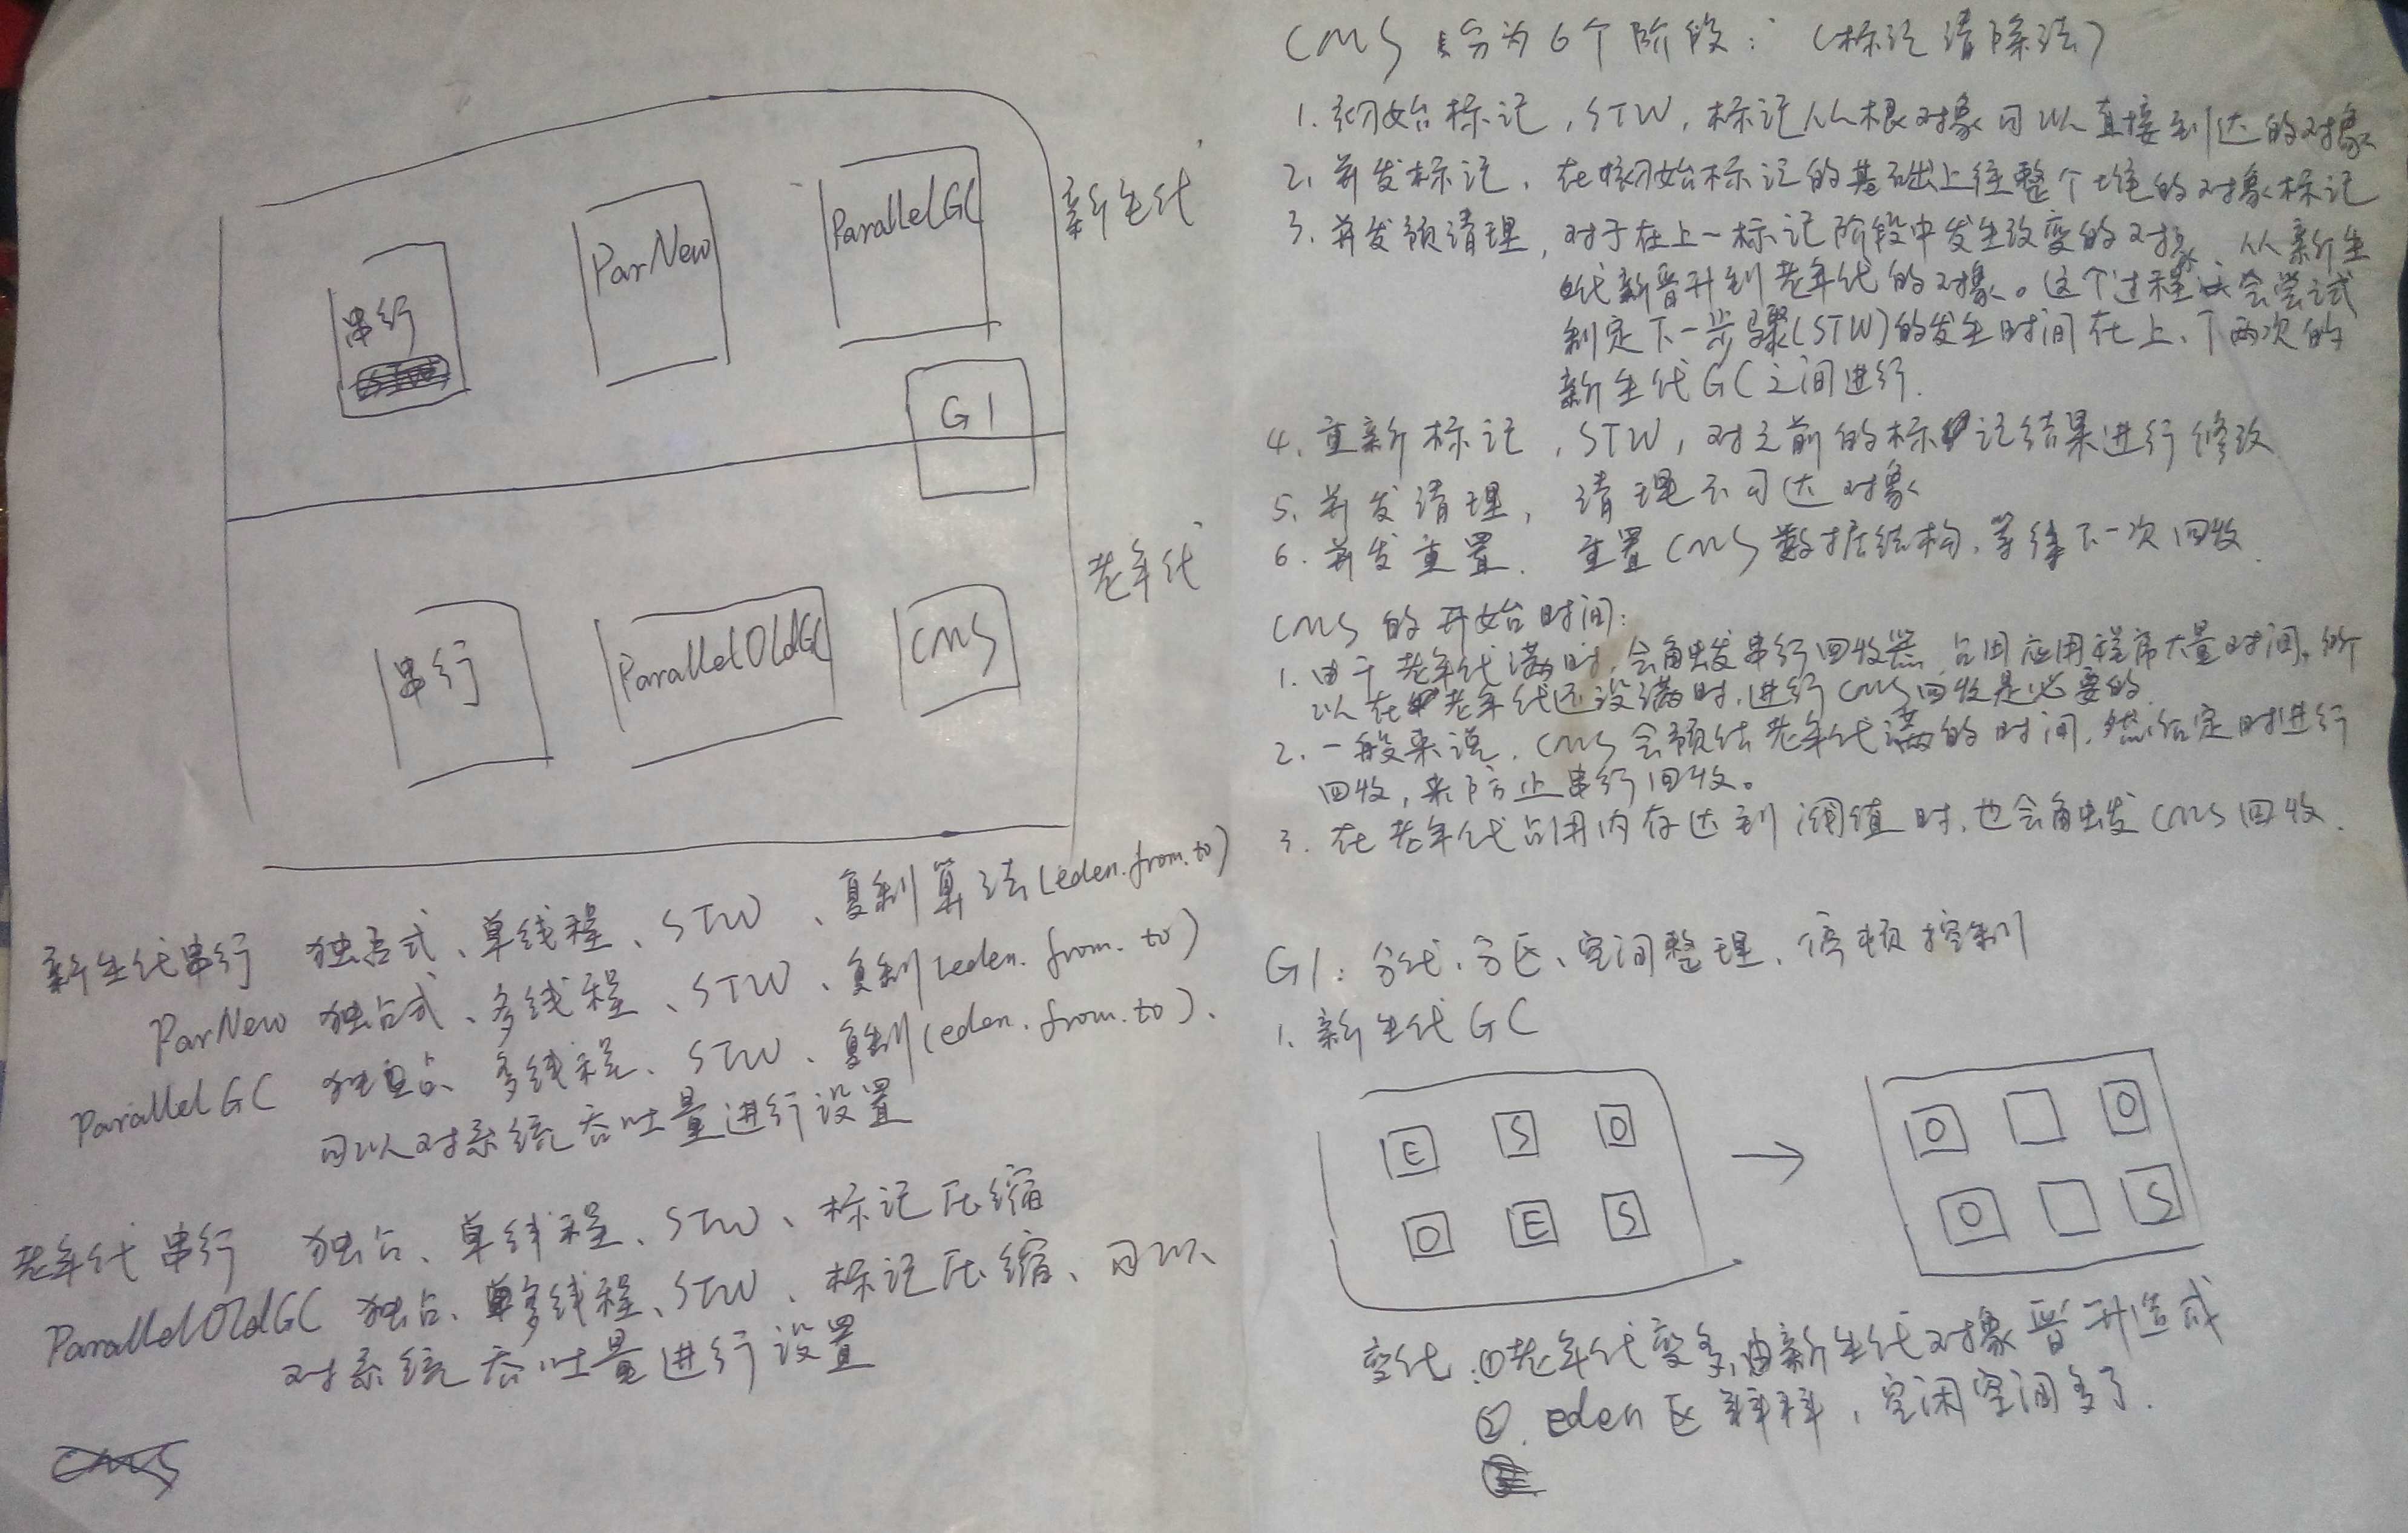 串行
ParNew
ParallelGC
新生代
G1
串行
ParallelOldGC
CMS
老年代
新生代串行 独占式、单线程、STW、复制算法(eden.from.to)
ParNew 独占式、多线程、STW、复制(eden.from.to)
ParallelGC 独占、多线程、STW、复制(eden.from.to)、
可以对系统吞吐量进行设置
老年代串行 独占、单线程、STW、标记压缩
ParallelOldGC 独占、多线程、STW、标记压缩、可以
对系统吞吐量进行设置
CMS
CMS 分为6个阶段:(标记清除法)
1.初始标记,STW,标记从根对象可以直接到达的对象
2.并发标记,在初始标记的基础上往整个堆的对象标记
3.并发预清理,对于在上一标记阶段中发生改变的对象、从新生
代新晋升到老年代的对象。这个过程会尝试
制定下一步骤(STW)的发生时间在上、下两次的
新生代GC之间进行.
4.重新标记,STW,对之前的标记结果进行修改
5.并发清理,清理不可达对象
6.并发重置.重置CMS数据结构,等待下一次回收.
CMS的开始时间:
1.由于老年代满时,会触发串行回收器,占用应用程序大量时间,所
以在老年代还没满时,进行CMS回收是必要的
2.一般来说,CMS会预估老年代满的时间,然后定时进行
回收,来防止串行回收。
3.在老年代占用内存达到阀值时,也会触发CMS回收.
G1:分代、分区、空间整理、停顿控制
1.新生代GC
E S O
O E S
→
O O
O S
变化:①老年代变多,由新生代对象晋升造成
②.eden区释释,空闲空间多了.